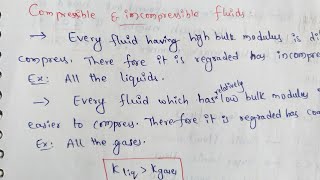 Compressible & incompressible fluids:
→ Every fluid having high bulk modulus is di
compress. There fore it is regraded has incompre
Ex: All the liquids.
→ Every fluid which has relatively low bulk modulus
easier to compress. Therefore it is regraded has co
Ex: All the gases.
K liq > K gases